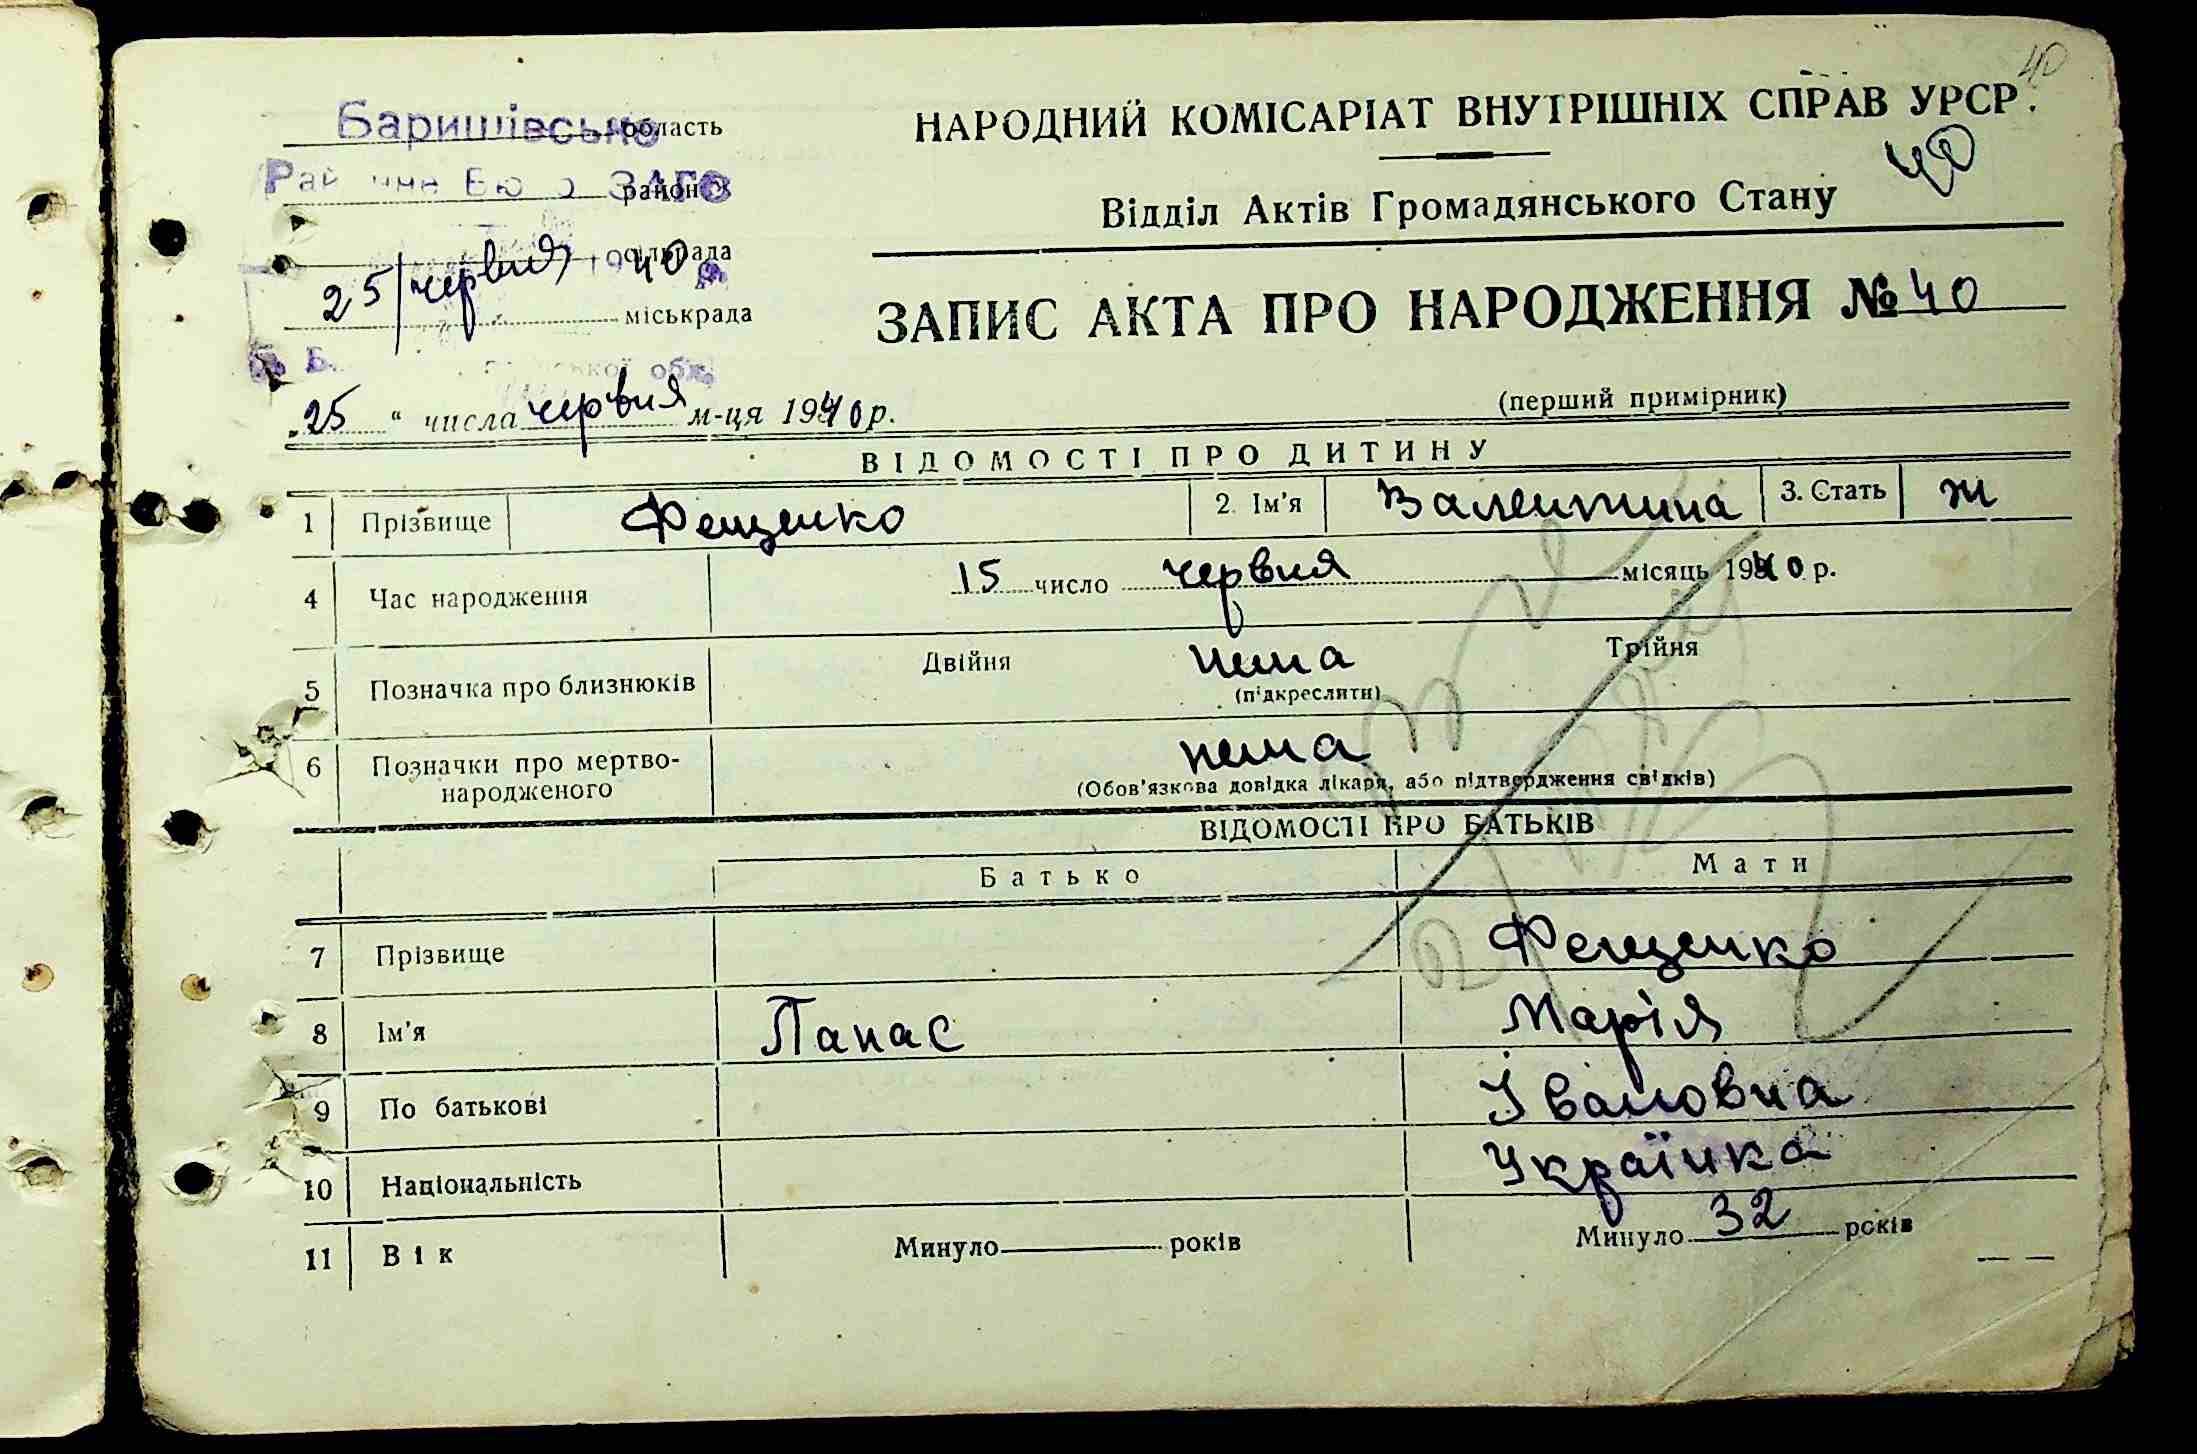 40
Баришівське область
НАРОДНИЙ КОМІСАРІАТ ВНУТРІШНІХ СПРАВ УРСР.
40
район
Відділ Актів Громадянського Стану
25/червня 1940 р. сільрада
міськрада
ЗАПИС АКТА ПРО НАРОДЖЕННЯ № 40
обл.
„25“ числа червня м-ця 1940 р.
(перший примірник)
ВІДОМОСТІ ПРО ДИТИНУ
1 Прізвище Фещенко 2. Ім'я Валентина 3. Стать ж
4 Час народження 15 число червня місяць 1940 р.
5 Позначка про близнюків Двійня нема Трійня
(підкреслити)
6 Позначки про мертво-
народженого нема
(Обов'язкова довідка лікаря, або підтвердження свідків)
ВІДОМОСТІ ПРО БАТЬКІВ
Батько Мати
7 Прізвище Фещенко
8 Ім'я Панас Марія
9 По батькові Івановна
10 Національність Українка
11 Вік Минуло років Минуло 32 років